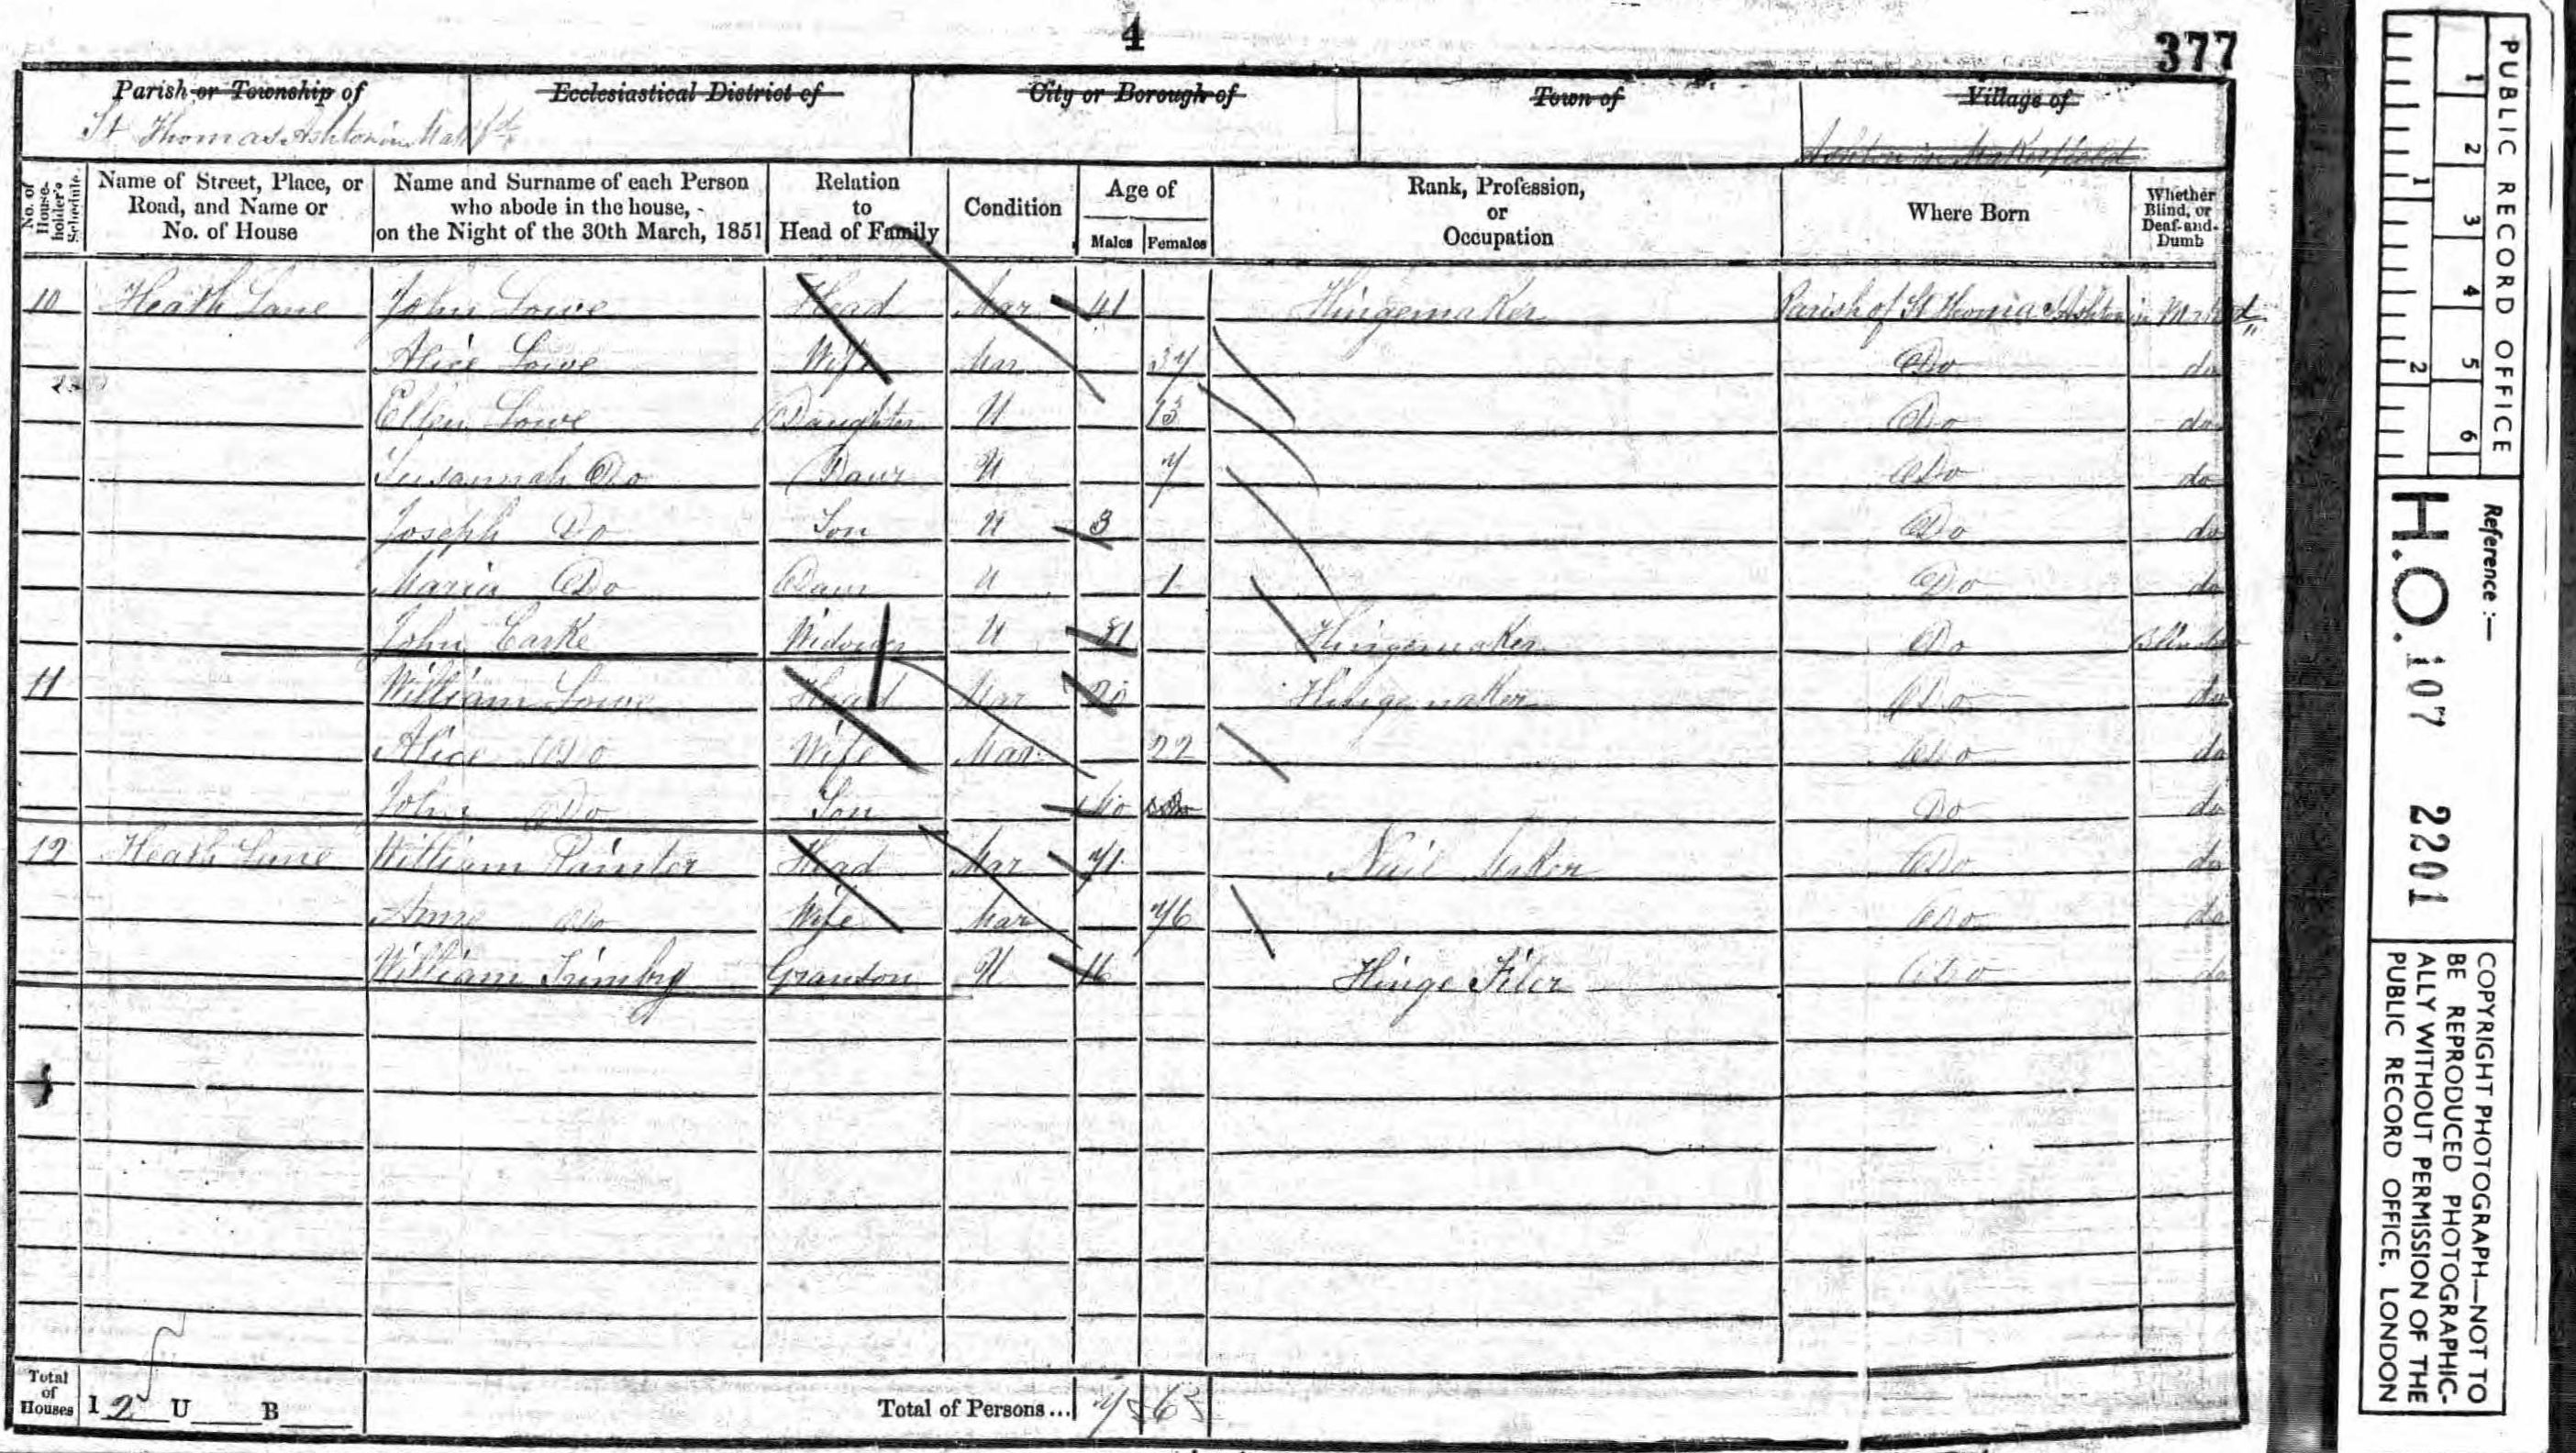 4
377
Parish or Township of
Ecclesiastical District of
City or Borough of
Town of
Village of
St Thomas Ashton in
Ashton in Makerfield
No. of House-holder's Schedule
Name of Street, Place, or Road, and Name or No. of House
Name and Surname of each Person who abode in the house, on the Night of the 30th March, 1851
Relation to Head of Family
Condition
Age of
Males
Females
Rank, Profession, or Occupation
Where Born
Whether Blind, or Deaf-and-Dumb
10 Heath Lane John Lowe Head Mar 41 Hingemaker Parish of St Thomas Ashton in
Alice Lowe Wife Mar 37 Do do
Ellen Lowe Daughter U 13 Do do
Susannah Do Daur U 7 Do do
Joseph Do Son U 3 Do do
Maria Do Daur U 1 Do do
John Widower U Hingemaker Do
11 William Lowe Head Mar Hingemaker Do do
Alice Do Wife Mar 22 Do do
John Do Son Do do
12 Heath Lane William Painter Head Mar 71 Nail Maker Do do
Anne Do Wife Mar 76 Do do
William Grandson U 16 Hinge Filer Do do
Total of Houses
I 2 U B
Total of Persons...
PUBLIC RECORD OFFICE
1 2 3 4 5 6
1 2
Reference :—
H.O. 107 2201
COPYRIGHT PHOTOGRAPH—NOT TO
BE REPRODUCED PHOTOGRAPHIC-
ALLY WITHOUT PERMISSION OF THE
PUBLIC RECORD OFFICE, LONDON